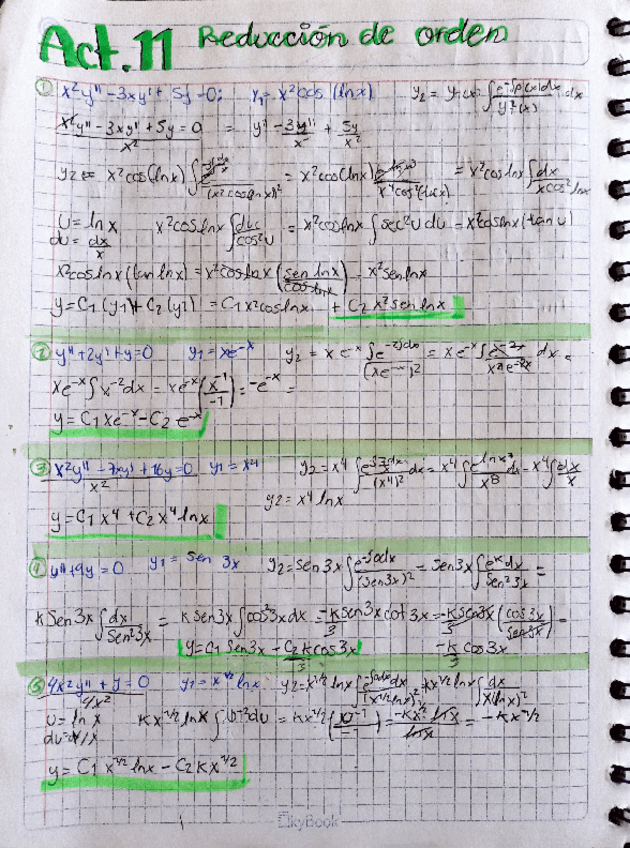 Act.11 Reducción de orden
① x²y'' - 3xy' + 5y = 0; y₁ = x²cos(lnx) y₂ = y₁(x)∫e^-∫p(x)dx/y₁²(x) dx
x²y'' - 3xy' + 5y = 0/x² = y'' - 3y'/x + 5y/x²
y₂ = x²cos(lnx)∫ /(x²cos(lnx))² = x²cos(lnx) /x⁴cos²(lnx) = x²coslnx∫dx/xcos²lnx
U = lnx x²coslnx∫du/cos²u = x²coslnx∫sec²u du = x²coslnx(tan u)
du = dx/x
x²coslnx(tan lnx) = x²coslnx(sen lnx/coslnx) x²senlnx
y = C₁(y₁) + C₂(y²) = C₁x²coslnx + C₂x²senlnx
② y'' + 2y' + y = 0 y₁ = xe^-x y₂ = xe^-x∫e^-2∫dx/(xe^-x)² = xe^-x∫e^-2x/x²e^-2x dx =
xe^-x∫x^-2dx = xe^-x(x^-1/-1) = -e^-x =
y = C₁xe^-x - C₂e^-x
③ x²y'' - 7xy' + 16y = 0/x² y₁ = x⁴ y₂ = x⁴∫ /(x⁴)² = x⁴∫ /x⁸ dx = x⁴∫dx/x
y₂ = x⁴lnx
y = C₁x⁴ + C₂x⁴lnx
④ y'' + 9y = 0 y₁ = sen 3x y₂ = sen3x∫e^-∫0dx/(sen3x)² = sen3x∫e^k dx/sen²3x =
k sen3x∫dx/sen²3x = k sen3x∫cos²3x dx = -k/3 sen3x cot3x = -k/3 sen3x(cos3x/sen3x) =
y = C₁ sen3x - C₂kcos3x/3 -k/3 cos3x
⑤ 4x²y'' + y = 0/4x² y₁ = x^1/2 lnx y₂ = x^1/2 lnx∫e^-∫0dx dx/(x^1/2lnx)² kx^1/2 lnx∫dx/x(lnx)²
U = lnx kx^1/2 lnx∫u^-2du = kx^1/2 = -kx^1/2 lnx/lnx = -kx^1/2
du = dx/x
y = C₁x^1/2 lnx - C₂kx^1/2
SkyBook